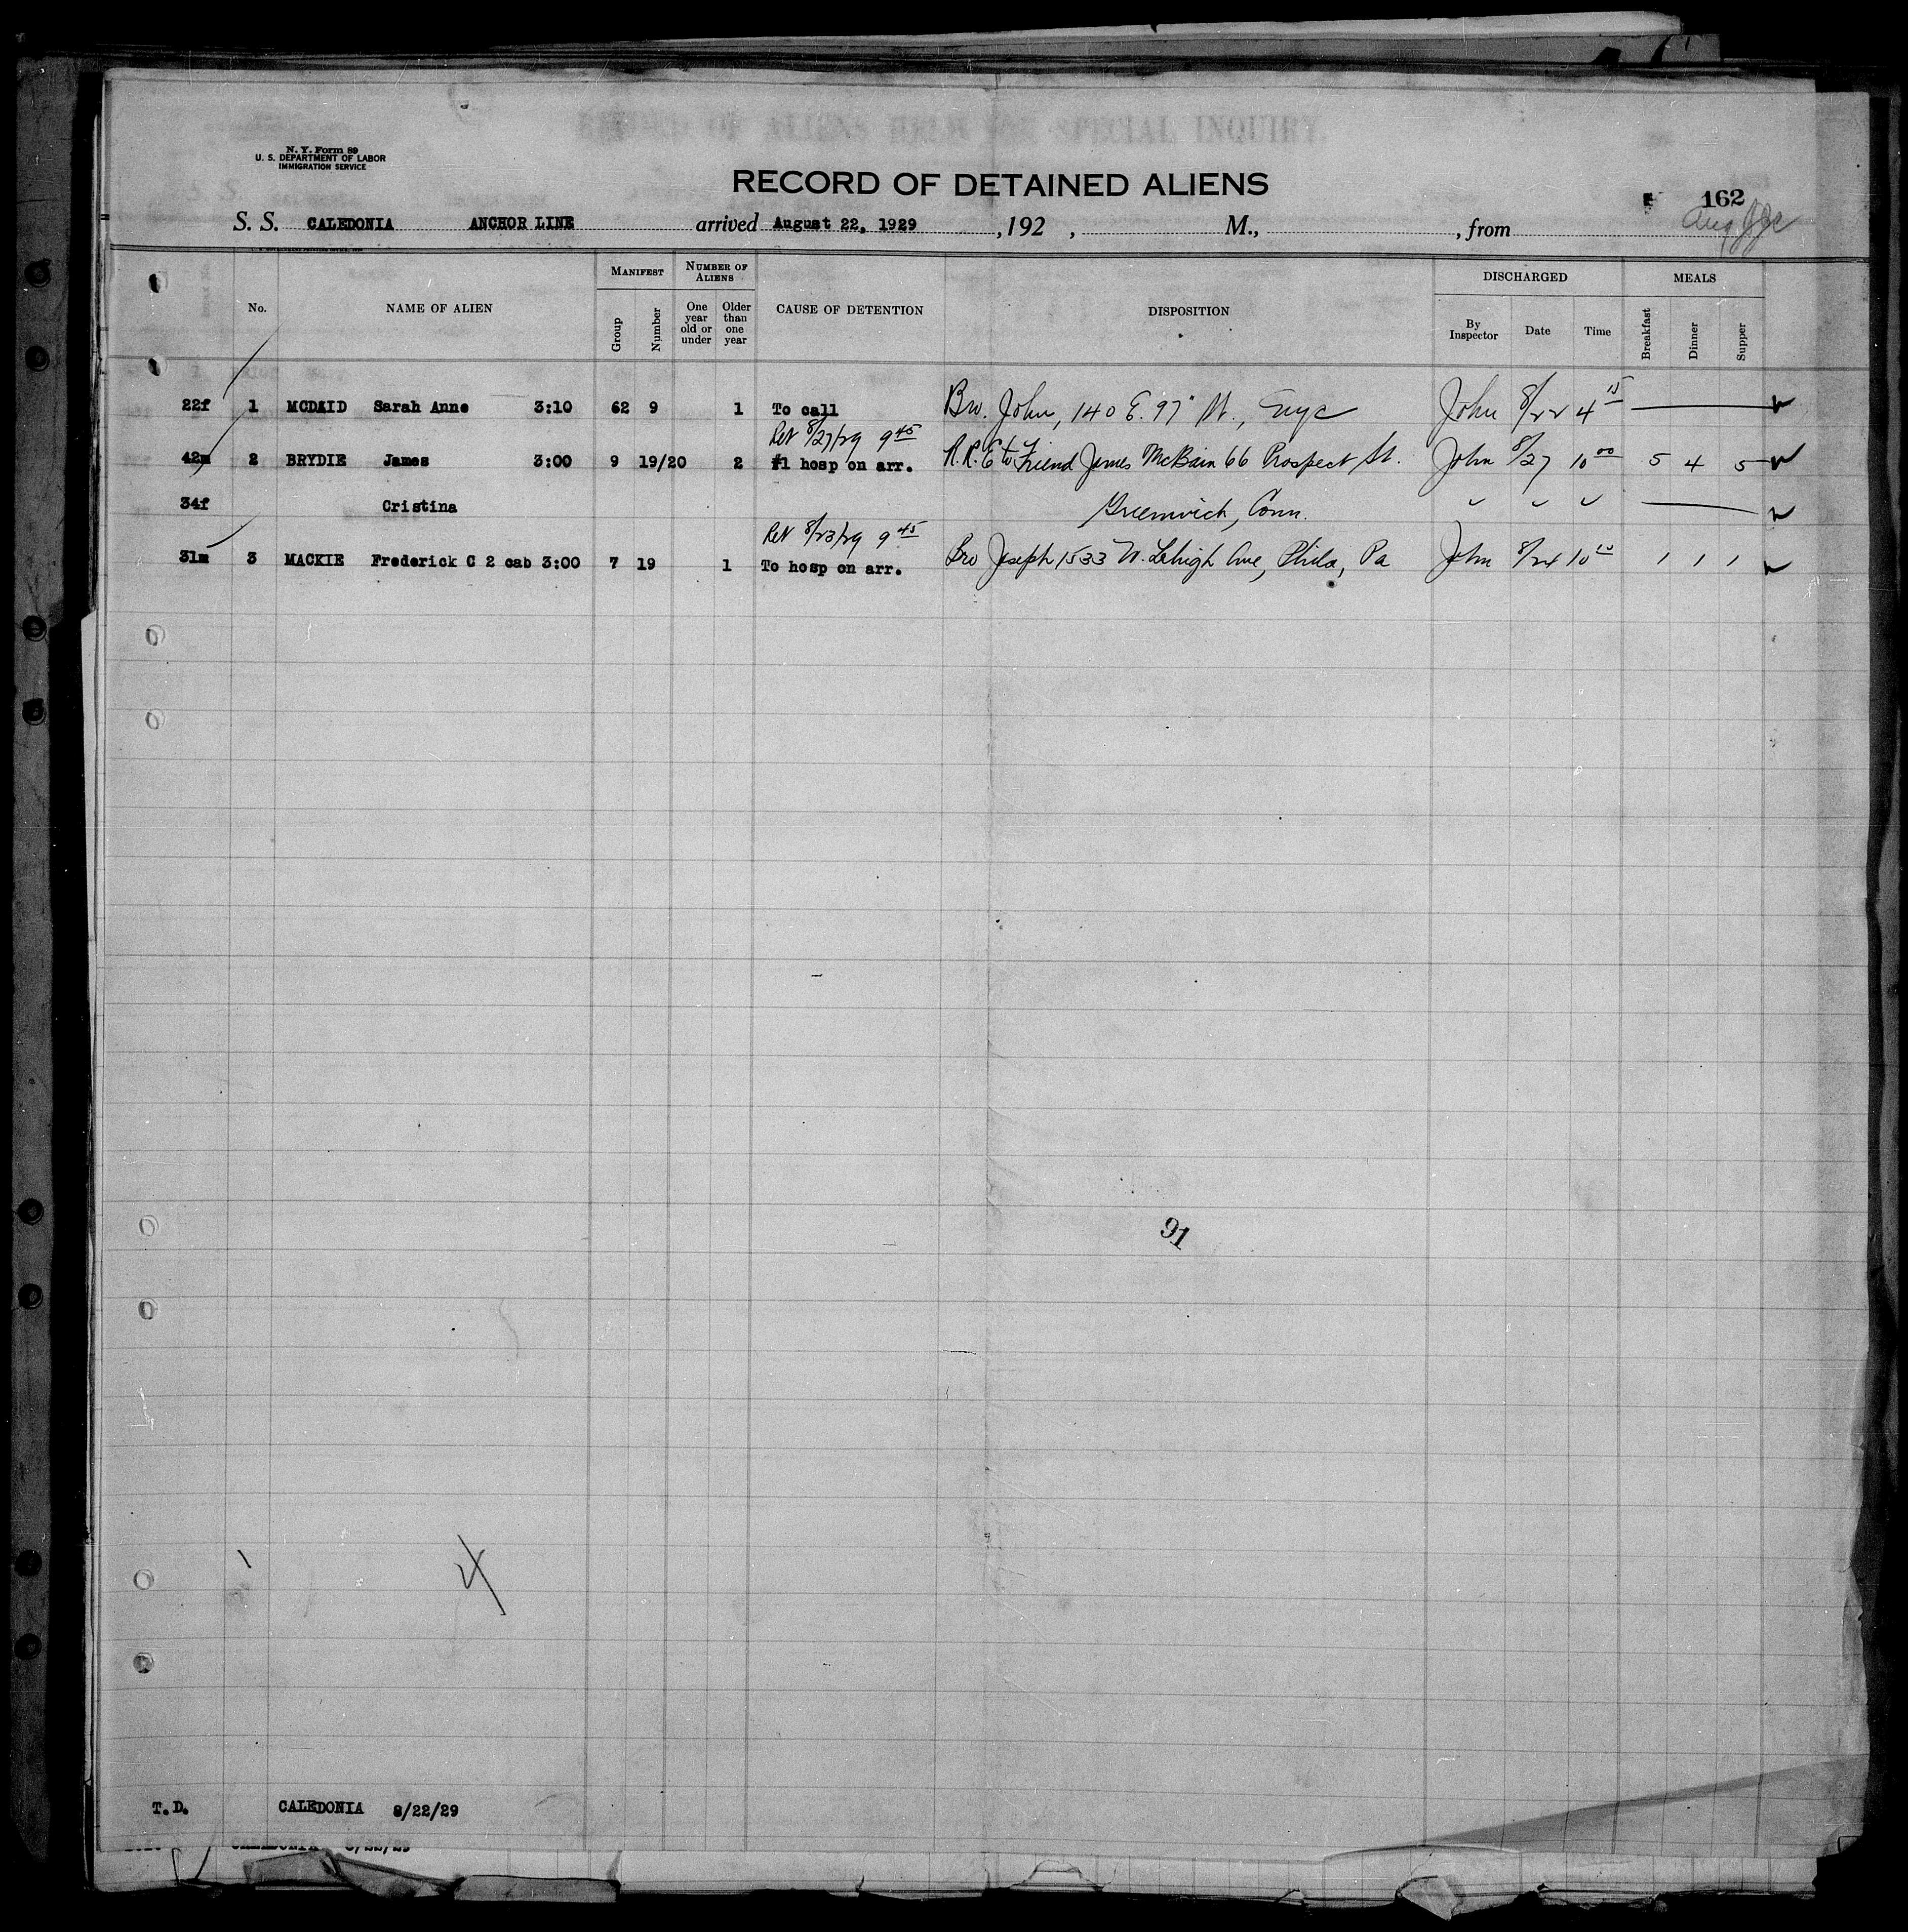 RECORD OF ALIENS HELD FOR SPECIAL INQUIRY.
N. Y. Form 89
U. S. DEPARTMENT OF LABOR
IMMIGRATION SERVICE
RECORD OF DETAINED ALIENS
162
S. S. CALEDONIA ANCHOR LINE arrived August 22, 1929 , 192 , M., , from
No. NAME OF ALIEN MANIFEST NUMBER OF ALIENS CAUSE OF DETENTION DISPOSITION DISCHARGED MEALS
Group Number One year old or under Older than one year By Inspector Date Time Breakfast Dinner Supper
22f 1 MCDAID Sarah Anne 3:10 62 9 1 To call Bro. John, 140 E. 97" St., nyc John 8/22 4 15
Ret 8/27/29 9 45
42m 2 BRYDIE James 3:00 9 19/20 2 #1 hosp on arr. R.R.E to Friend James McBain 66 Prospect St. John 8/27 10 00 5 4 5
34f Cristina Greenwich, Conn. " " "
Ret 8/23/29 9 45
31m 3 MACKIE Frederick C 2 cab 3:00 7 19 1 To hosp on arr. Bro Joseph 1533 W. Lehigh Ave, Phila, Pa John 8/24 10 10 1 1 1
91
4
T.D. CALEDONIA 8/22/29
CALEDONIA 8/22/29